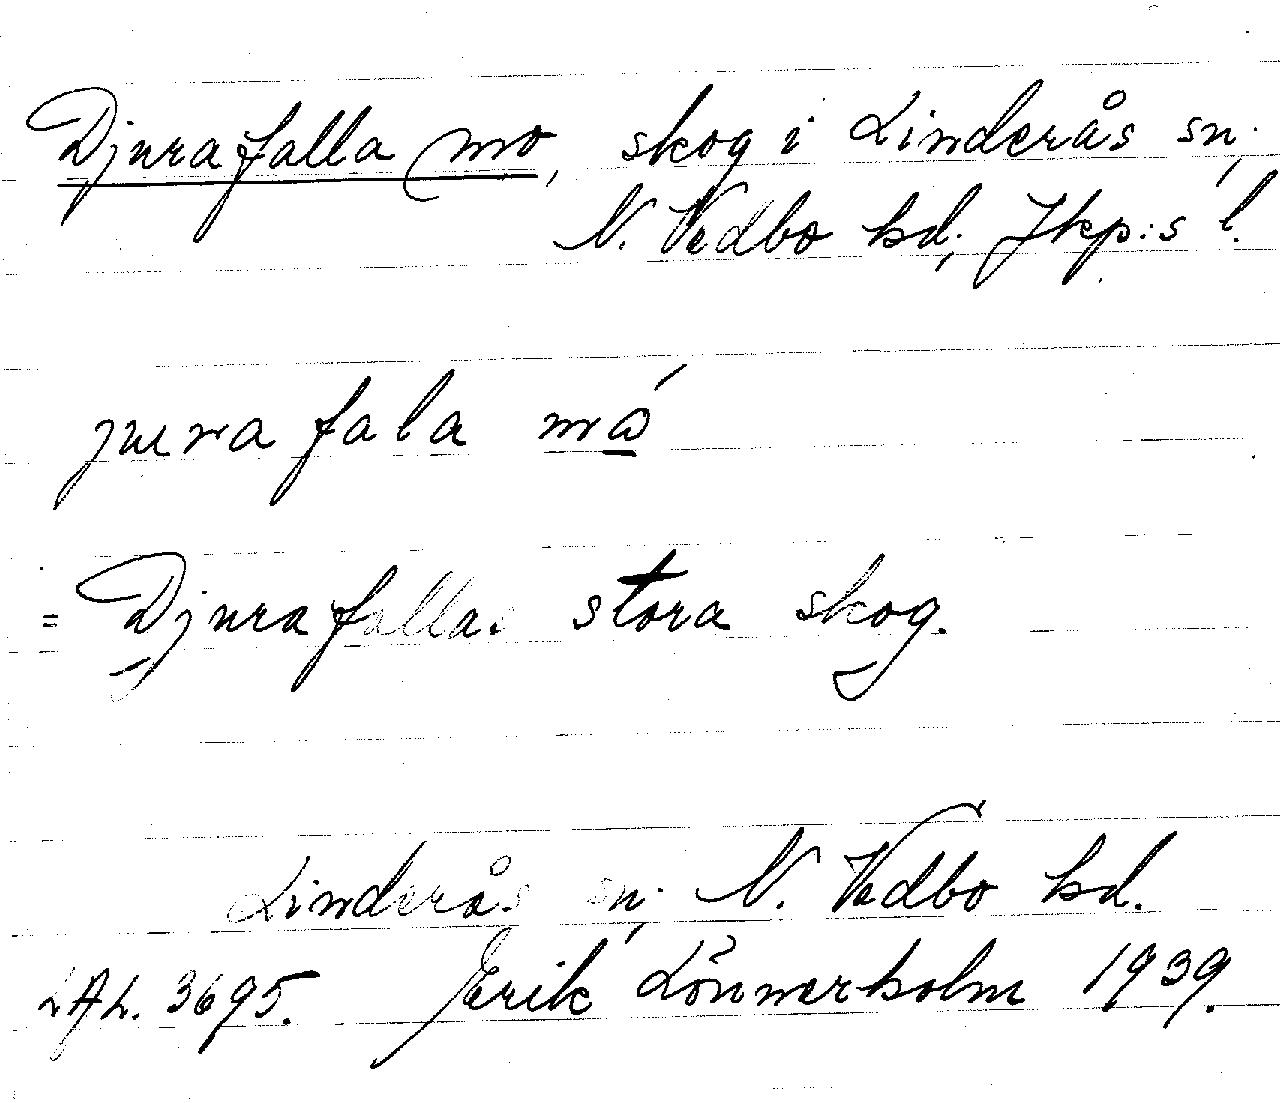 Djurafalla mo, skog i Linderås sn,
N. Vedbo hd, Jkp:s l.
jura fala må
= Djurafallas stora skog.
Linderås sn, N. Vedbo hd.
LAL. 3695. Erik Lönnerholm 1939.